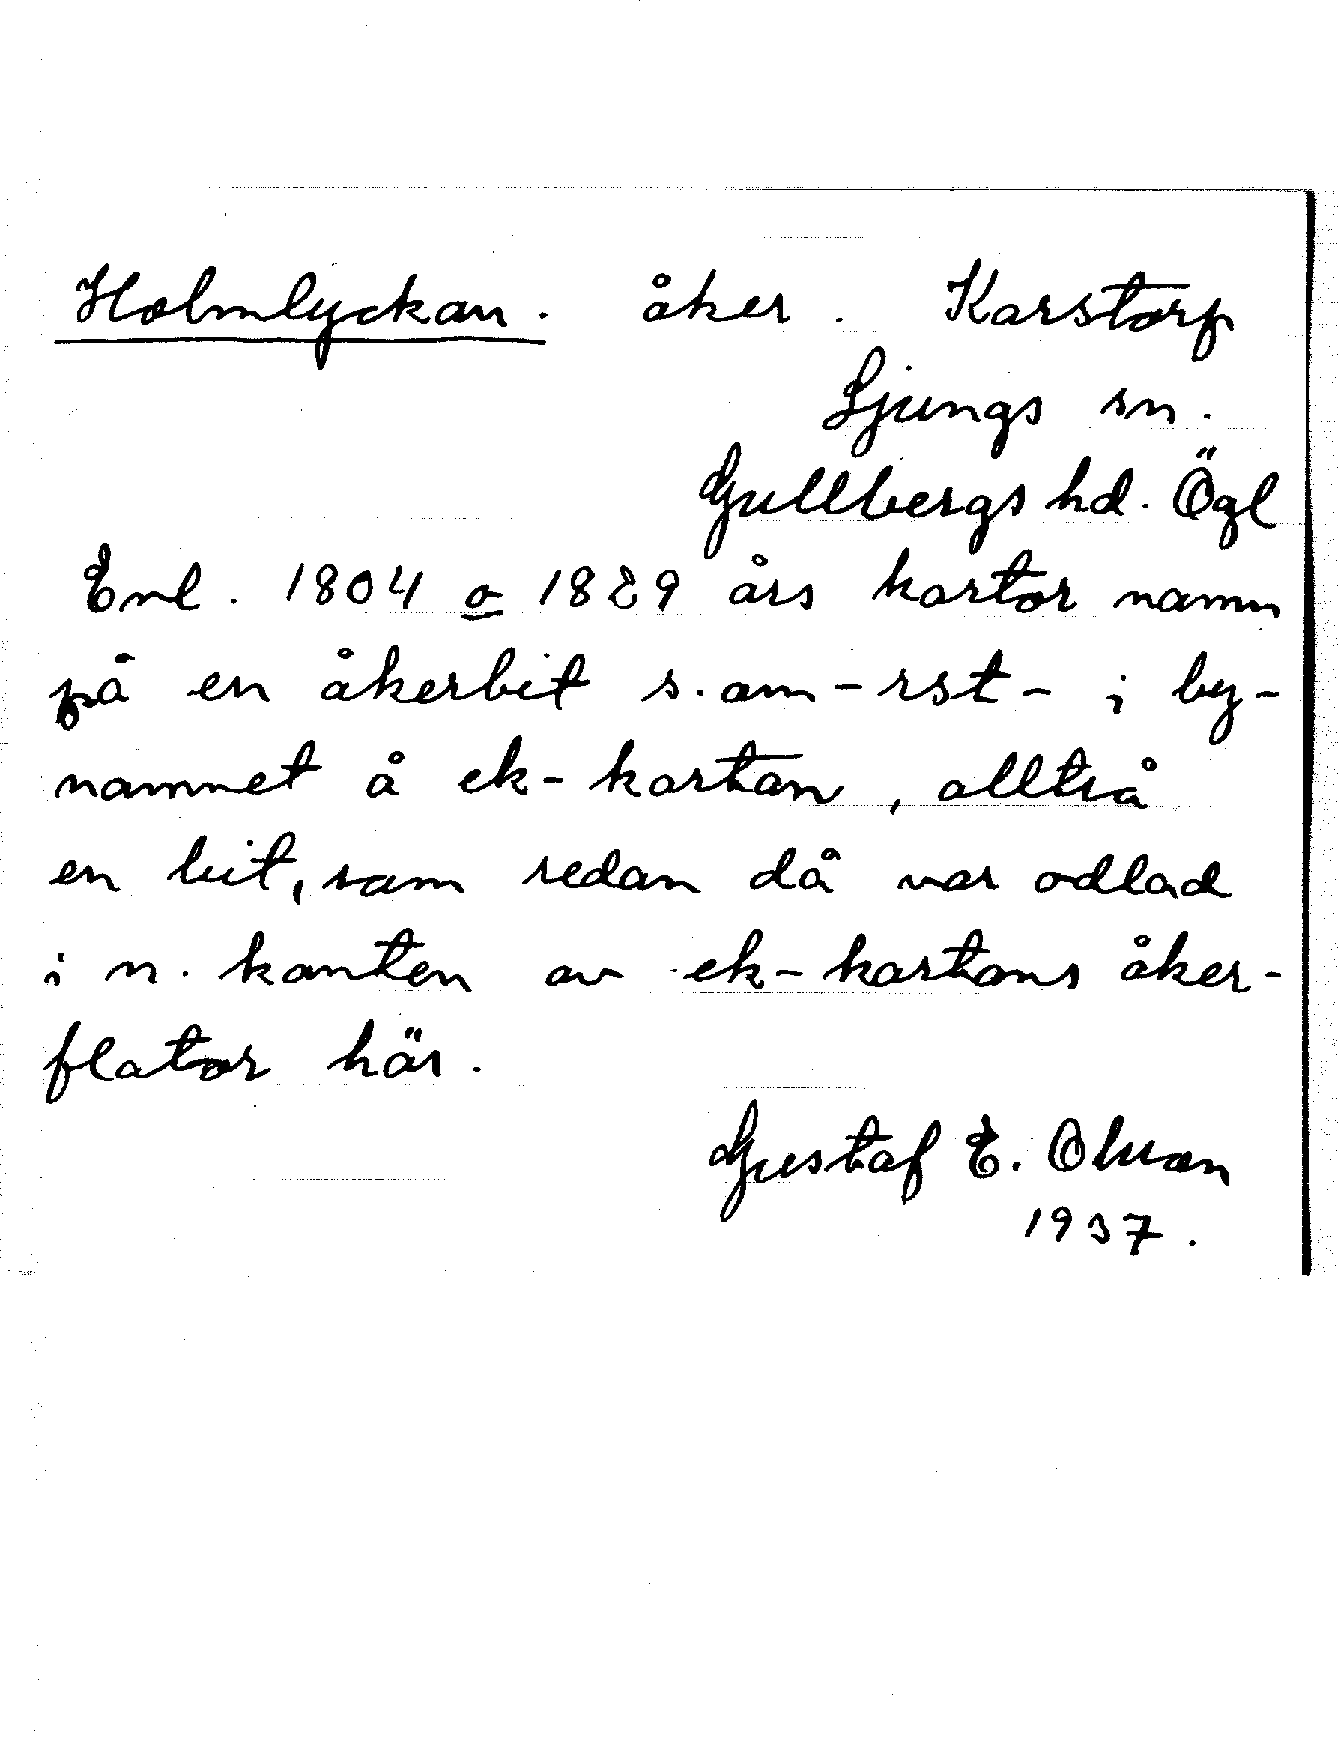 Holmlyckan. åker. Karstorp
Ljungs sn.
Gullbergs hd. Ögl
Enl. 1804 o 1829 års kartor namn
på en åkerbit s. om -rst- i by-
namnet å ek-kartan, alltså
en bit, som redan då var odlad
i n. kanten av ek-kartans åker-
flator här.
Gustaf E. Olsson
1937.